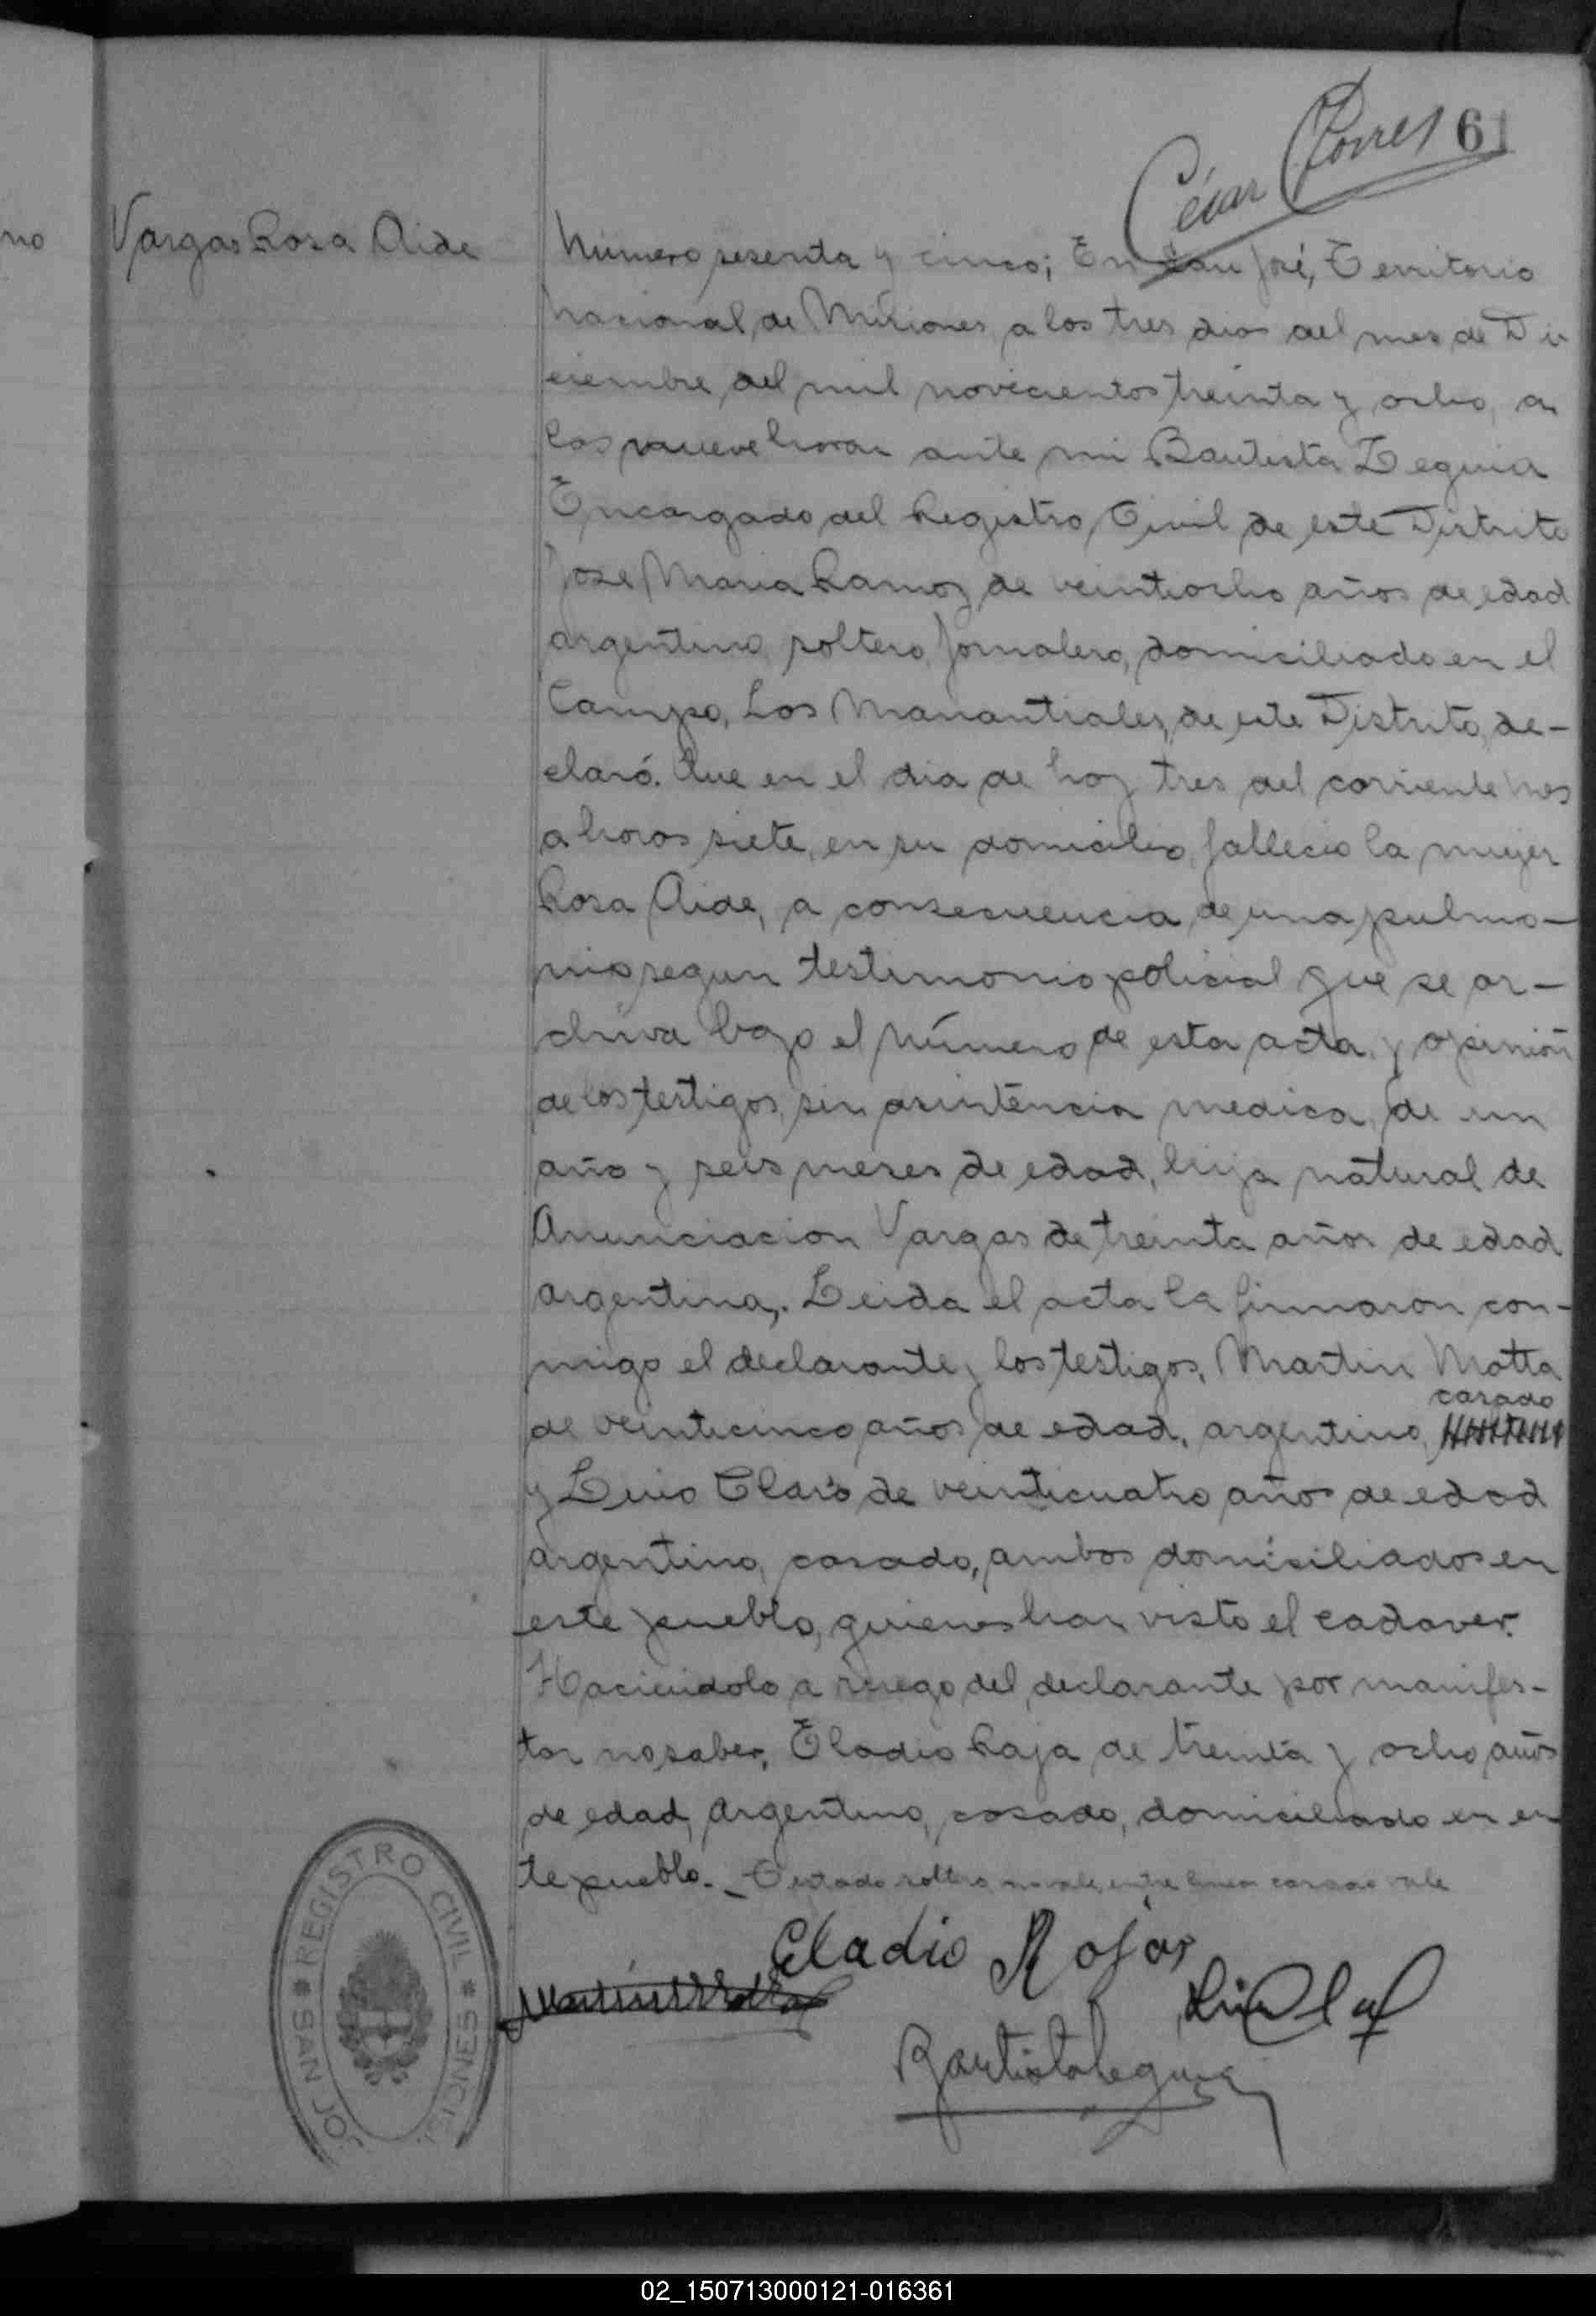 César Torres 61
no
Vargas Rosa Aide
Número sesenta y cinco; En San José, Territorio
Nacional de Misiones, a los tres dias del mes de Di
ciembre del mil novecientos treinta y ocho, a
las nueve horas ante mi Bautista Leguia
Encargado del Registro Civil de este Distrito
José Maria Ramoz de veintiocho años de edad
argentino, soltero, jornalero, domiciliado en el
Campo, Los Manantiales, de este Distrito, de-
claró. Que en el dia de hoy tres del corriente mes
a horas siete, en su domicilio, fallecio la mujer
Rosa Aide, a consecuencia de una pulmo-
nia segun testimonio policial que se ar-
chiva bajo el número de esta acta, y opinión
de los testigos, sin asintencia medica, de un
año y seis meses de edad, hija natural de
Anunciacion Vargas de treinta años de edad
argentina,. Leida el acta la firmaron con-
migo el declarante y los testigos, Martin Motta
casado
de veinticinco años de edad, argentino,
y Luis Claro de veinticuatro años de edad
argentino, casado, ambos domisiliados en
este pueblo, quienes han visto el cadaver.
Haciendolo a ruego del declarante por manifes-
tar no saber, Eladio Roja de treinta y ocho años
de edad, argentino, casado, domiciliado en es
te pueblo. _ Testado soltero no vale, entre linea casado vale
Eladio Rojas
Martin Motta
Luis Claro
Bautista Leguia
REGISTRO CIVIL * MISIONES
* SAN JOSÉ
02_150713000121-016361